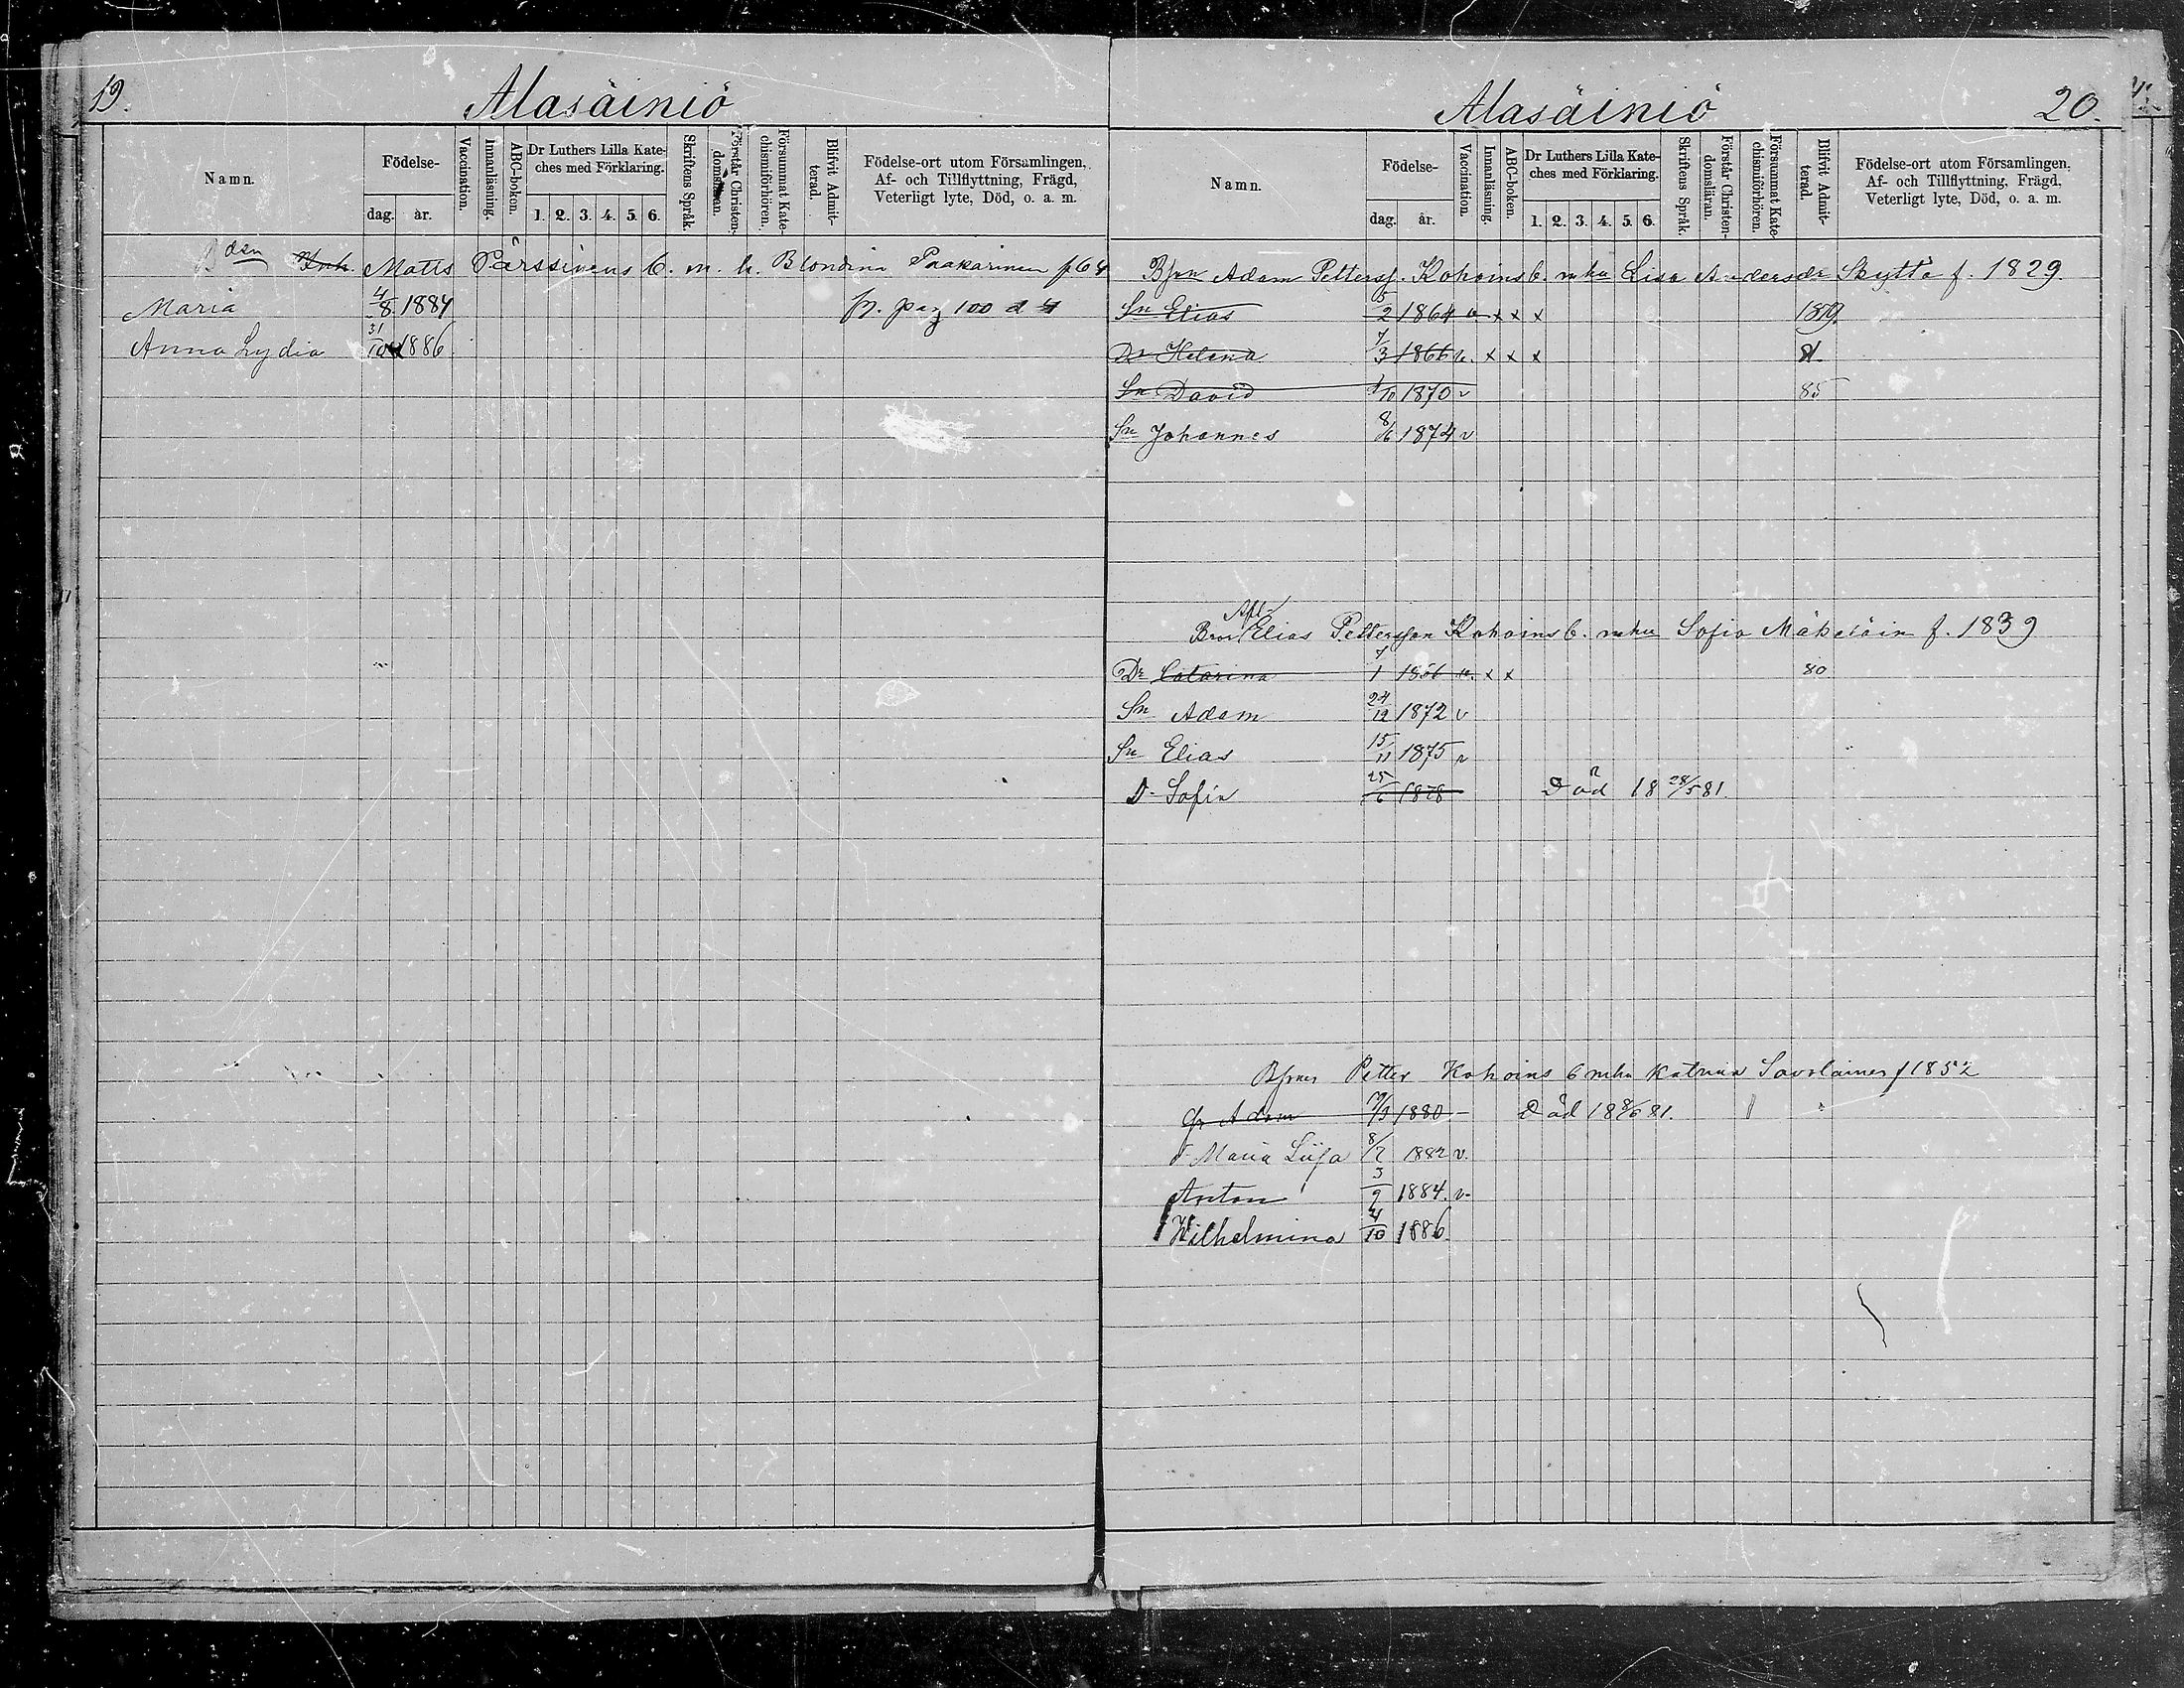 19.
Alasäiniö
Namn.
Födelse-
dag.
år.
Vaccination.
Innanläsning.
ABC-boken.
Dr Luthers Lilla Kate-
ches med Förklaring.
1. 2. 3. 4. 5. 6.
Skriftens Språk.
Förstår Christen-
domsläran.
Försummat Kate-
chismiförhören.
Blifvit Admit-
terad.
Födelse-ort utom Församlingen,
Af- och Tillflyttning, Frägd,
Veterligt lyte, Död, o. a. m.
Matts Pärssinens b. m. h. Blondina Paakarinen f. 64
Maria 4/8 1884 fr. pag 100
Anna Lydia 31/10 1886
Alasäiniö
20.
Namn.
Födelse-
dag.
år.
Vaccination.
Innanläsning.
ABC-boken.
Dr Luthers Lilla Kate-
ches med Förklaring.
1. 2. 3. 4. 5. 6.
Skriftens Språk.
Förstår Christen-
domsläran.
Försummat Kate-
chismiförhören.
Blifvit Admit-
terad.
Födelse-ort utom Församlingen,
Af- och Tillflyttning, Frägd,
Veterligt lyte, Död, o. a. m.
Adam Petterss. Kohoins b. m hu Lisa Andersdr Skyttä f. 1829
Sn Elias 5/2 1864 v. x x x 1879.
Dr Helena 7/3 1866 v. x x x 81
Sn David 1/10 1870 v 85
Sn Johannes 8/6 1874 v
Afl.
Bror Elias Petterson Kohoins b. m hu Sofia f. 1839
Dr Catarina 7/1 1866 v. x x 80
Sn Adam 24/12 1872 v
Sn Elias 15/11 1875 v
D. Sofia 25/6 1878 Död 18 28/5 81.
Petter Kohoins b m hu Katrina Savolainen f 1852
Adam 1880 Död 18 8/6 81.
Maria Liisa 8/2 1882 v.
Anton 3/9 1884. v.
Wilhelmina 4/10 1886.